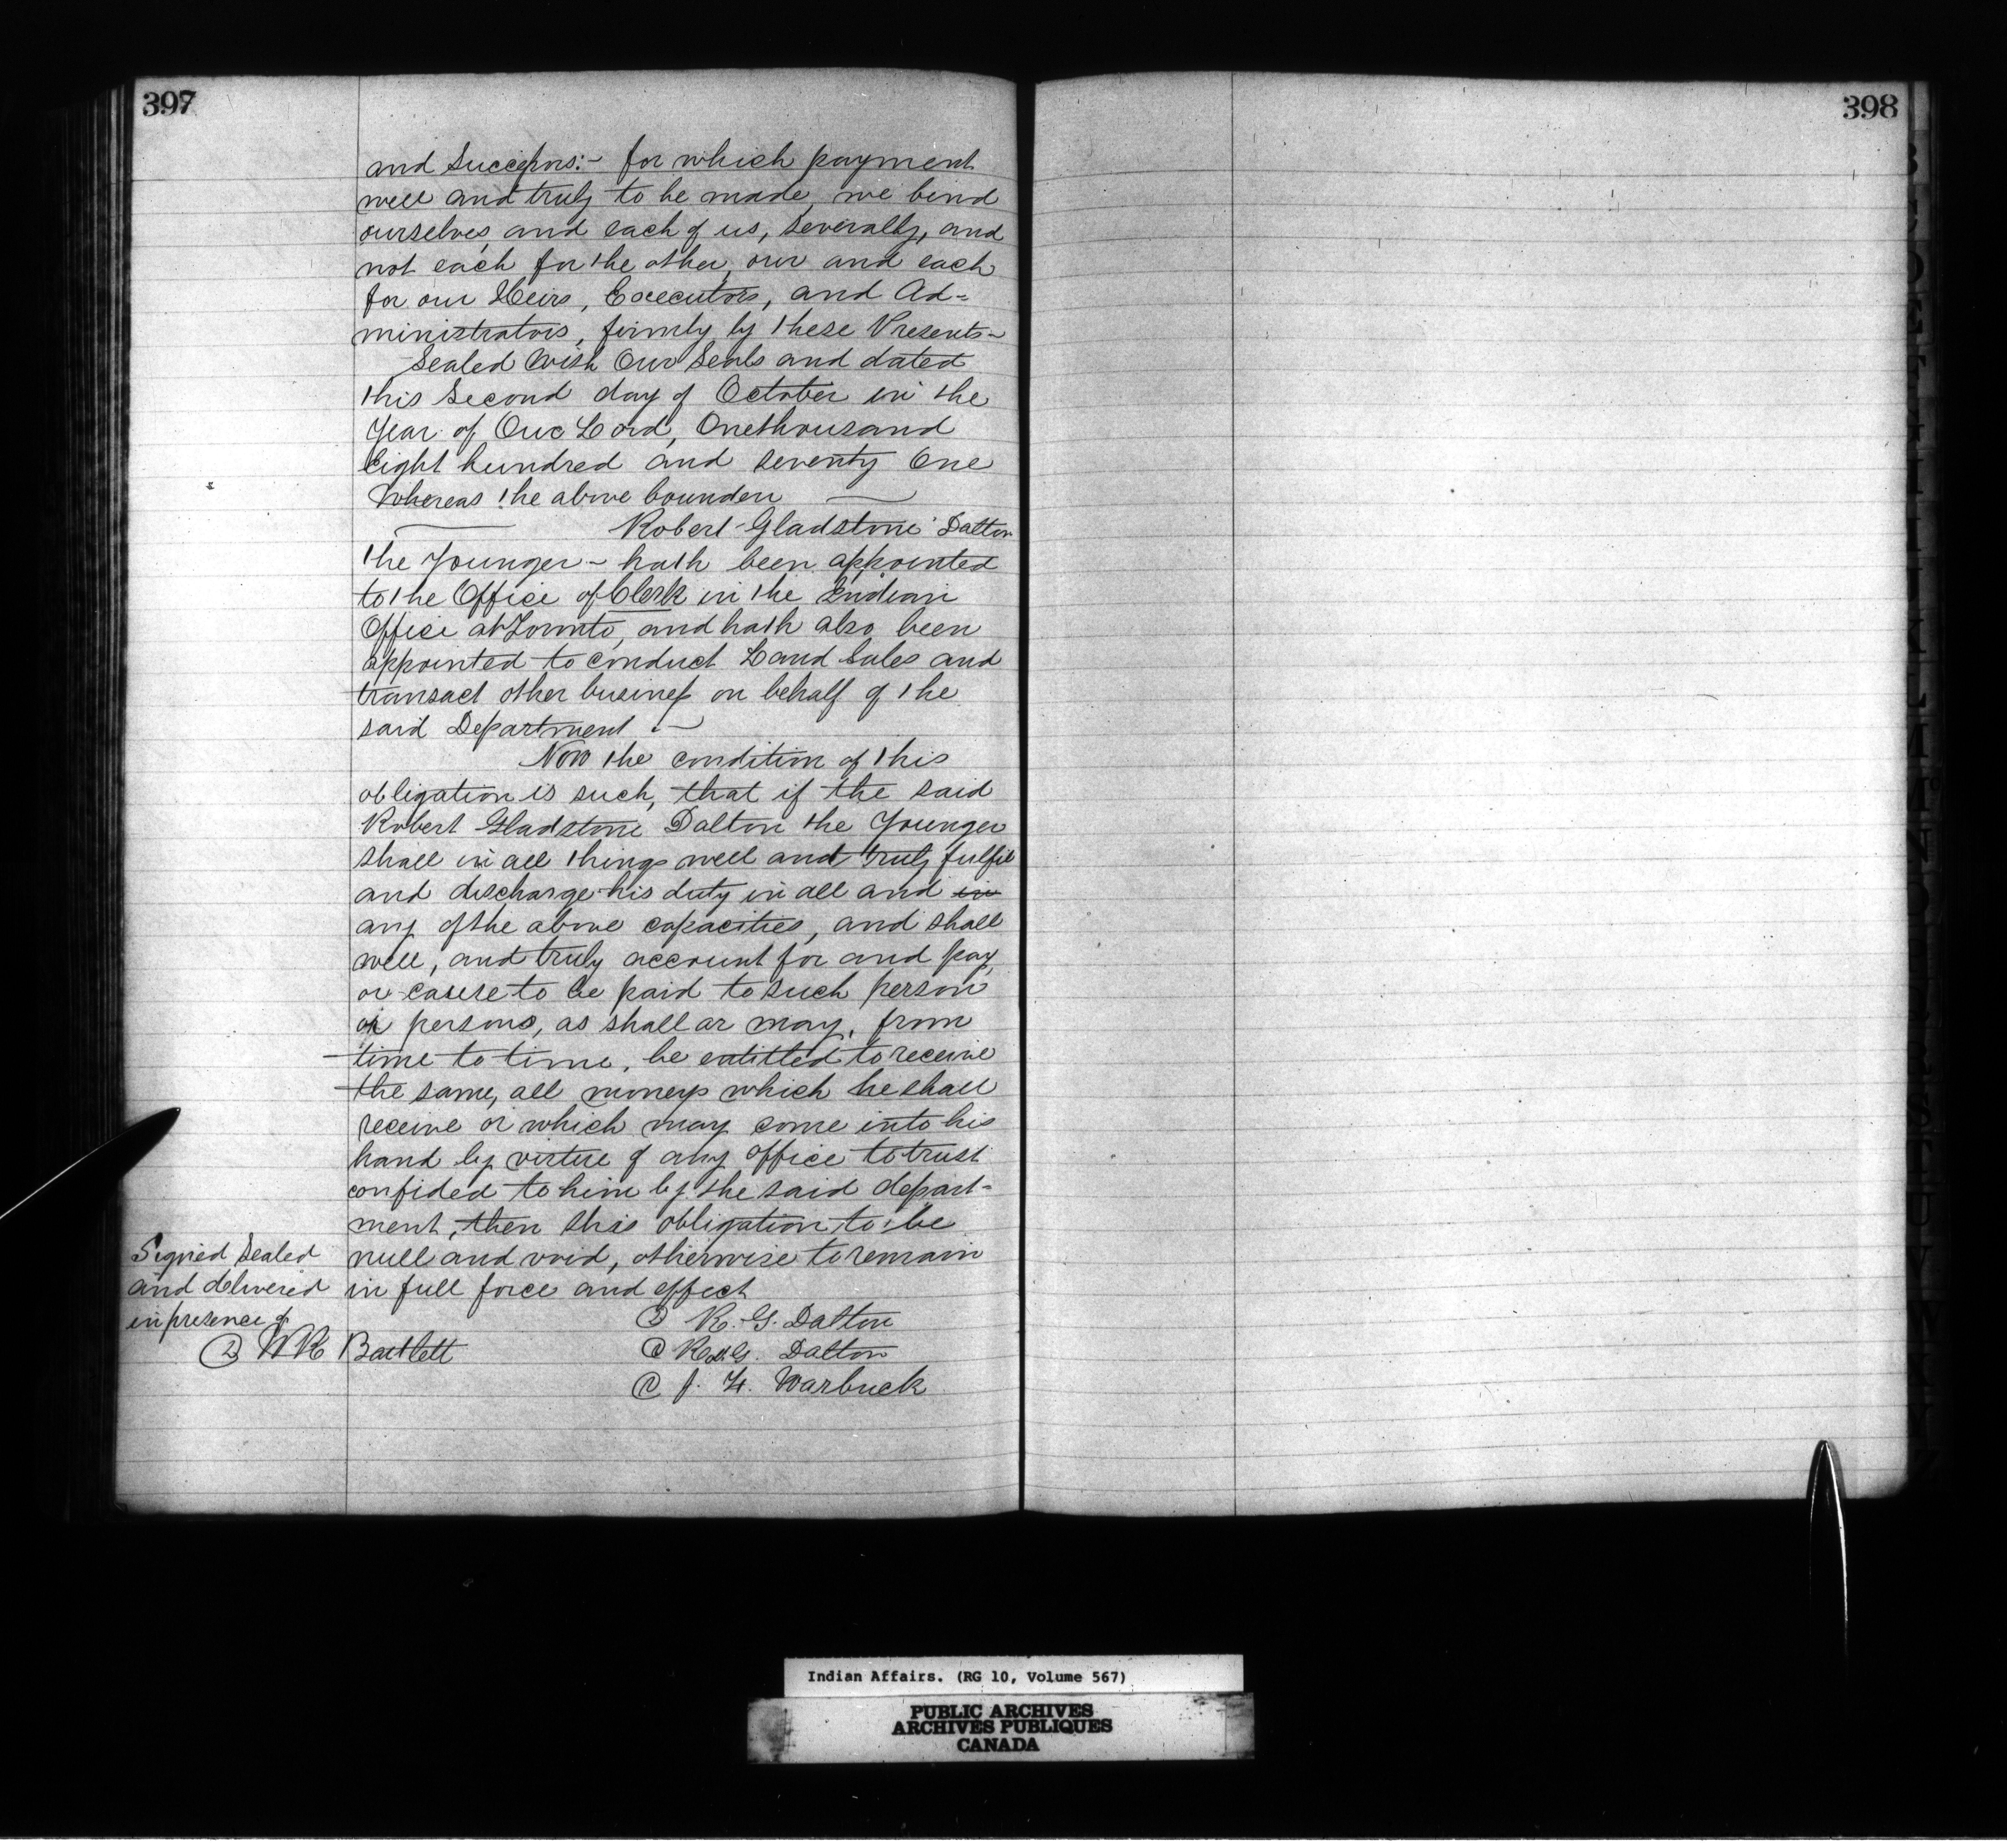 397
398
and Successors:- for which payment
well and truly to be made, we bind
ourselves, and each of us, severally, and
not each for the other, our and each
for our Heirs, Executors, and Ad=
ministrators, firmly by these Presents-
Sealed With Our Seals and dated
this Second day of October in the
Year of Our Lord, Onethousand
Eight hundred and seventy One
Whereas the above bounden
Robert Gladstone Dalton
the Younger - hath been appointed
to the Office of Clerk in the Indian
Office at Toronto, and hath also been
appointed to conduct Land Sales and
transact other business on behalf of the
said Department.-
Now the condition of this
obligation is such, that if the said
Robert Gladstone Dalton the Younger
shall in all things well and truly fulfil
and discharge his duty in all and in
any of the above capacities, and shall
well, and truly account for and pay,
or cause to be paid to such person
or persons, as shall or may, from
time to time, be entitled to receive
the same, all moneys which he shall
receive or which may come into his
hand by virtue of any office to trust
confided to him by the said depart-
ment, then this obligation to be
null and void, otherwise to remain
in full force and effect
Signed Sealed
and delivered
in presence of
W R Bartlett
R. G. Dalton
R. G. Dalton
Warbuck
Indian Affairs. (RG 10, Volume 567)
PUBLIC ARCHIVES
ARCHIVES PUBLIQUES
CANADA